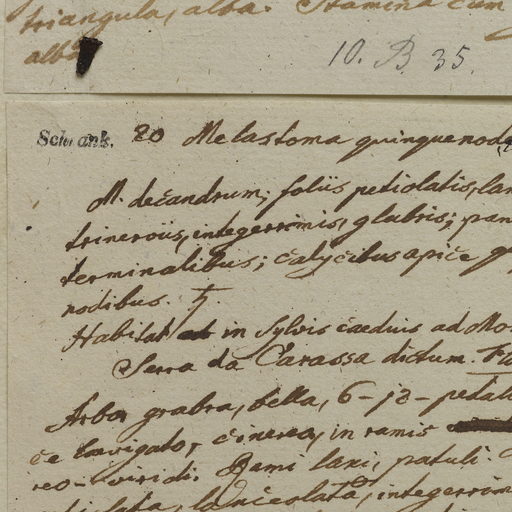 triangula, alba. Stamina cum
alba
10. B. 35.
Schrank. 80 Melastoma quinquenod
M. decandrum; foliis petiolatis, lan
trinerviis, integerrimis, glabris; pan
terminalibus; calycibus apice q
nodibus. ♄.
Habitat in Sylvis caeduis ad Mon
Serra da Carassa dictum. Fo
Arbor grabra, bella, 6-12-pedal
ce laevigato, cinereo, in ramis
reo-viridi. Rami laxi, patuli.
lanceolata, integerrim